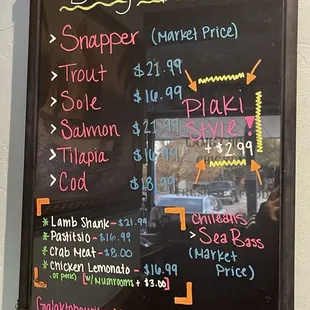 > Snapper (Market Price)
> Trout $21.99
> Sole $16.99
> Salmon $21.99
> Tilapia $16.99
> Cod $18.99
Plaki
Style!
+ $2.99
* Lamb Shank - $21.99
* Pastitsio - $16.99
* Crab Meat - $8.00
* Chicken Lemonato - $16.99
(or pork) [w/ Mushrooms + $3.00]
Chilean
> Sea Bass
(Market
Price)